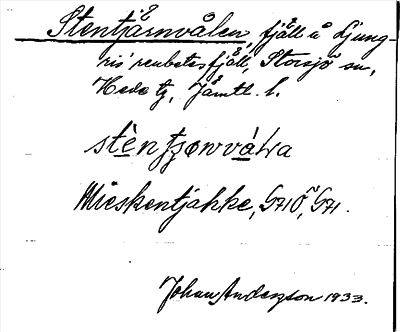 Stentjärnvålen, fjäll å Ljung-
ris' renbetesfjäll, Storsjö sn,
Hede tg, Jämtl. l.
Mieskentjakke, G41Ö, G41.
Johan Anderzson 1933.